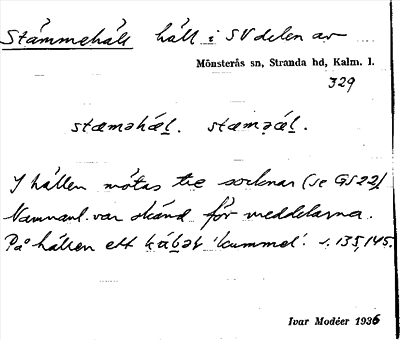 Stämmehäll häll i SV delen av
Mönsterås sn, Stranda hd, Kalm. l.
329
stæməhæḻ. stæmə̣æ̣ḻ.
I hällen mötas tre socknar (se GS22).
Namnanl. var okänd för meddelarna.
På hällen ett 'kummel'. s. 135,145.
Ivar Modéer 1936